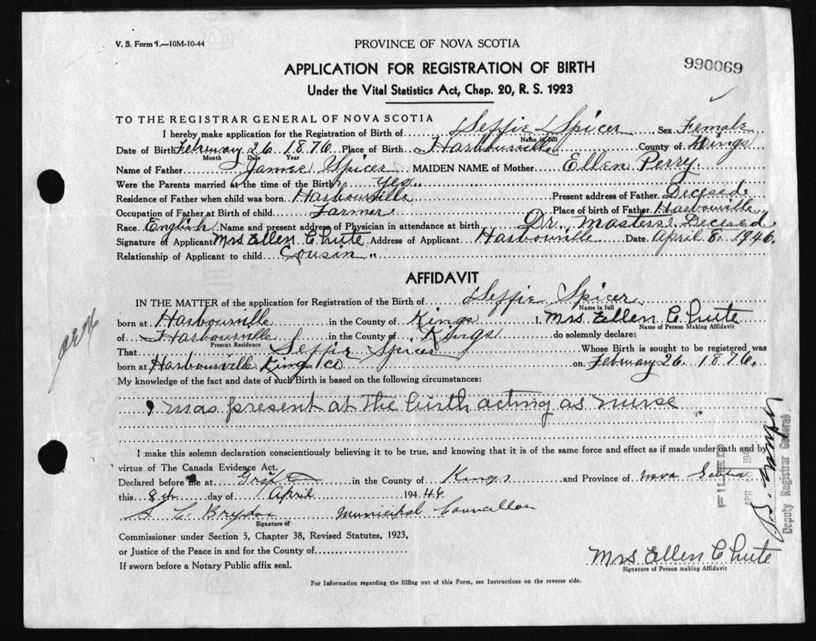 V. S. Form 1.—10M-10-44
PROVINCE OF NOVA SCOTIA
990069
APPLICATION FOR REGISTRATION OF BIRTH
Under the Vital Statistics Act, Chap. 20, R. S. 1923
TO THE REGISTRAR GENERAL OF NOVA SCOTIA
I hereby make application for the Registration of Birth of Seffie Spicer Sex Female
Name in full
Date of Birth February 26 1876 Place of Birth Harbourville County of Kings
Month Date Year
Name of Father James Spicer MAIDEN NAME of Mother Ellen Perry
Were the Parents married at the time of the Birth? Yes
Residence of Father when child was born Harbourville Present address of Father Decesed
Occupation of Father at Birth of child Farmer Place of birth of Father Harbouville
Race English Name and present address of Physician in attendance at birth Dr. Masters Decesed
Signature of Applicant Mrs Ellen Chute Address of Applicant Harbourville Date April 8. 1946.
Relationship of Applicant to child Cousin "
AFFIDAVIT
IN THE MATTER of the application for Registration of the Birth of Seffie Spicer
Name in full
born at Harbourville in the County of Kings I, Mrs Ellen Chute
Name of Person Making Affidavit
of Harbourville in the County of Kings do solemnly declare:
Present Residence
That Seffie Spicer Whose Birth is sought to be registered was
born at Harbourville Kings Co on February 26. 1876.
My knowledge of the fact and date of such Birth is based on the following circumstances:
I was present at the birth acting as nurse
I make this solemn declaration conscientiously believing it to be true, and knowing that it is of the same force and effect as if made under oath and by
virtue of The Canada Evidence Act.
Declared before me at in the County of Kings and Province of Nova Scotia
this 8th day of April 1946
Municipal Councillor
Signature of
Commissioner under Section 5, Chapter 38, Revised Statutes, 1923,
or Justice of the Peace in and for the County of
If sworn before a Notary Public affix seal.
Mrs Ellen Chute
Signature of Person making Affidavit
For Information regarding the filling out of this Form, see Instructions on the reverse side.
FILED
Deputy Registrar General